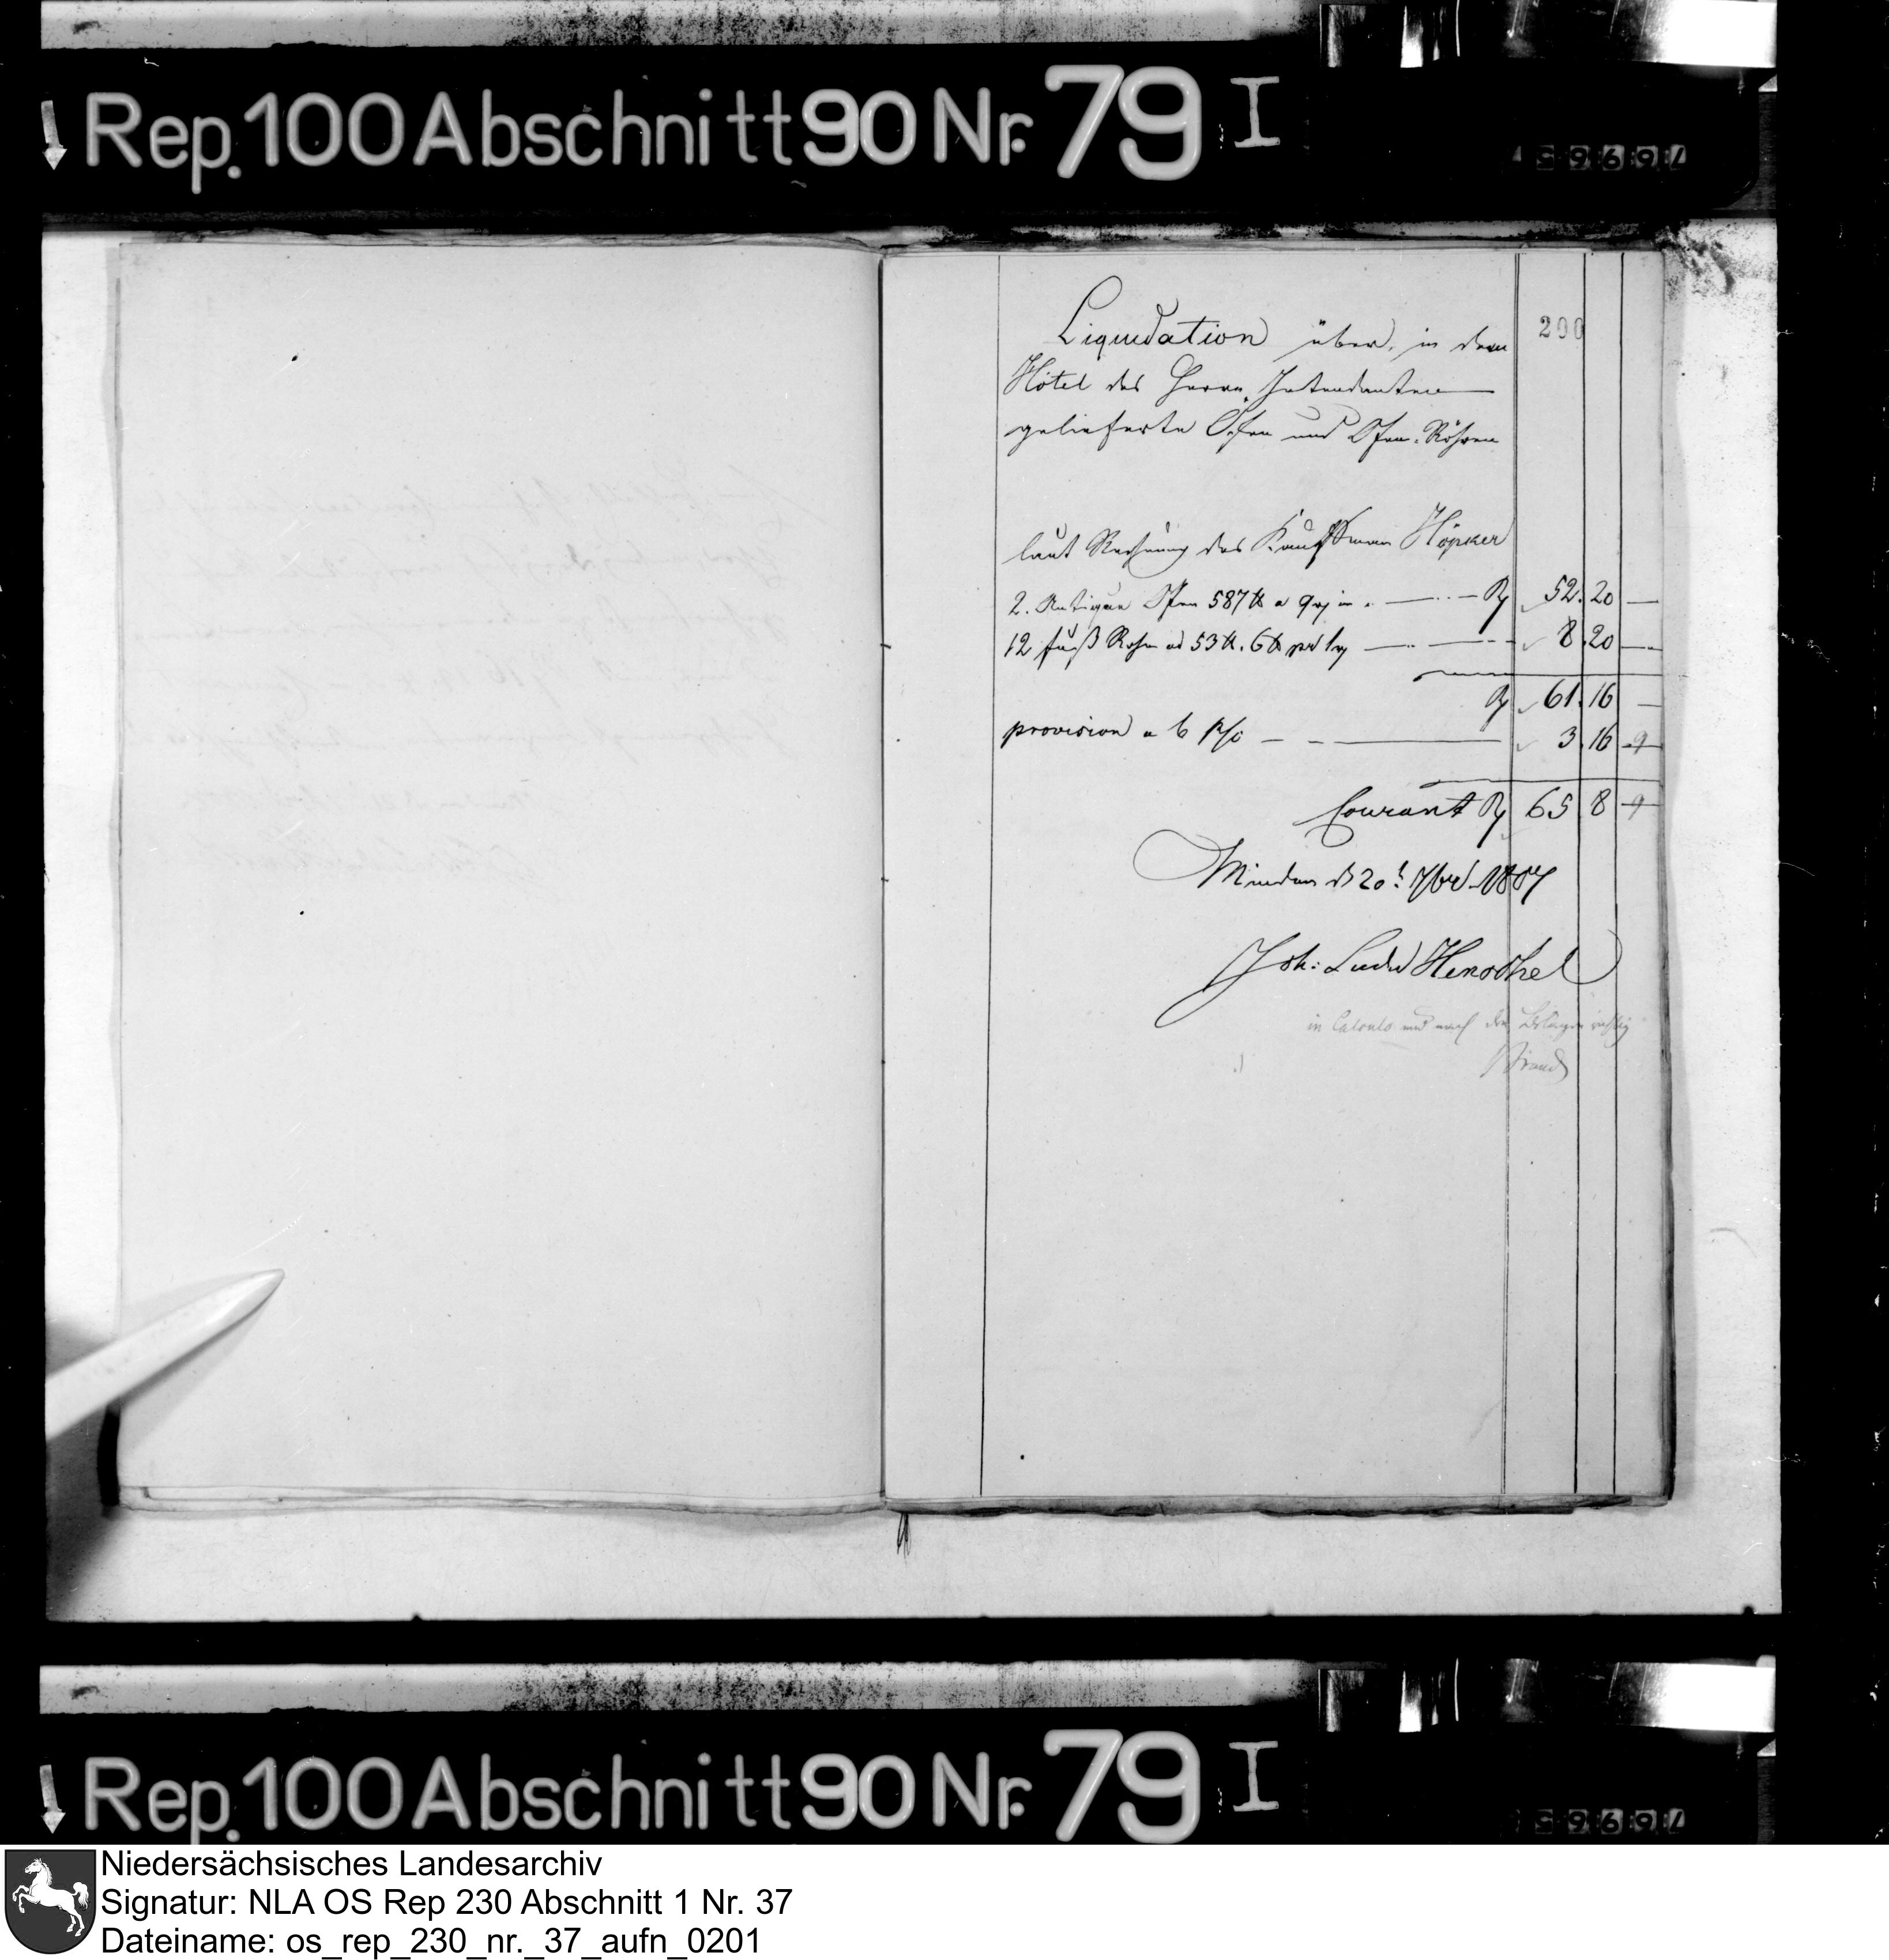 Rep. 100 Abschnitt 90 Nr. 79 I
76965
200
Liquidation über, in dem
Hôtel des Herrn Intendanten
gelieferte Ofen und Ofen-Röhren
laut Rechnung des Kauffman Höpker
2. Antique Ofen 587 ℔ a — Rℓ 52. 20 —
12 fuß Rohr ad 53 ℔. 6 ℔ pr 1 — 8. 20 —
Rℓ 61. 16 —
provision a 6 P/c — 3. 16 9
Courant Rℓ 65 8 9
Minden d 20t 7br 1807
Joh: Ludw Henschel
in Calculo und nach den Belagen richtig
Rep. 100 Abschnitt 90 Nr. 79 I
76965
Niedersächsisches Landesarchiv
Signatur: NLA OS Rep 230 Abschnitt 1 Nr. 37
Dateiname: os_rep_230_nr._37_aufn_0201